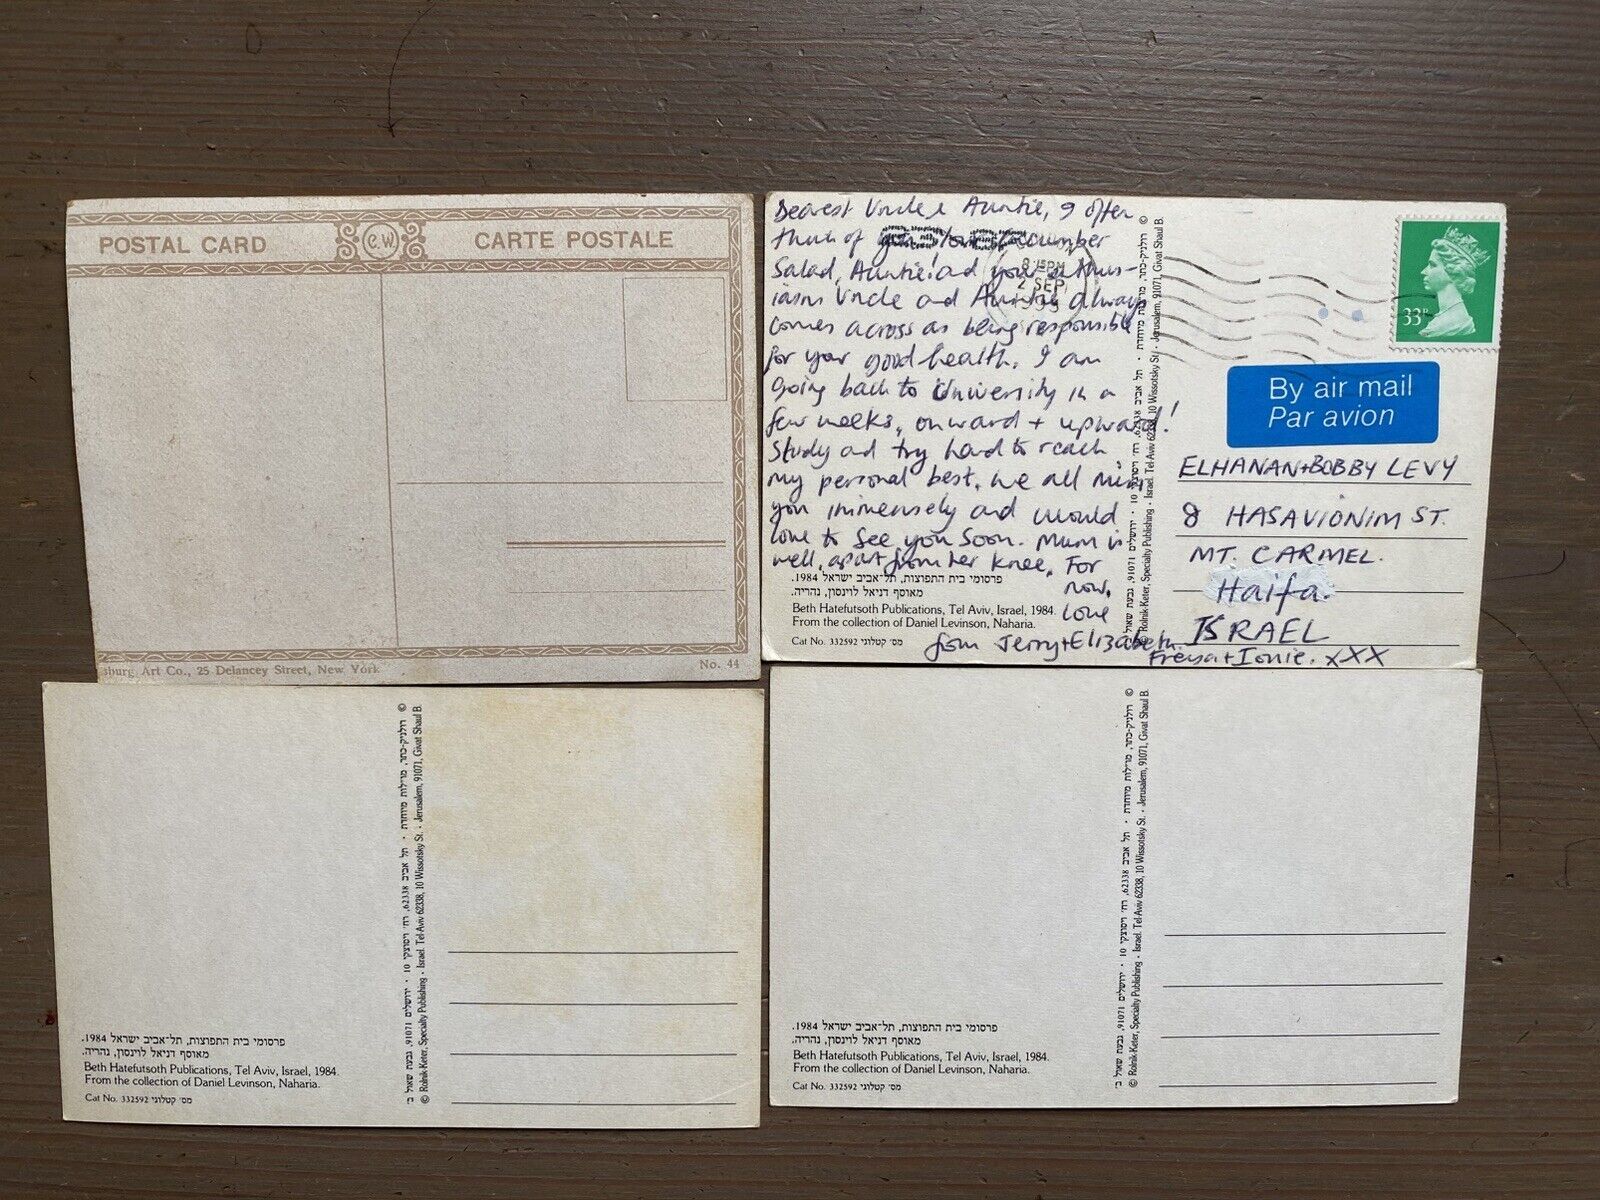 POSTAL CARD
C.W
CARTE POSTALE
sburg Art Co., 25 Delancey Street, New York
No. 44
Dearest Uncle & Auntie, I often
think of your Cucumber
Salad, Auntie! and your enthus-
iasm Uncle and Auntie always
comes across as being responsible
for your good health. I am
going back to University in a
few weeks, onward + upward!
Study and try hard to reach
my personal best. We all miss
you immensely and would
love to see you soon. Mum is
well, apart from her knee. For
now,
love
from Jerry + Elizabeth
Freya + Ionie. xXX
8 15PM
2 SEP
33P
By air mail
Par avion
ELHANAN + BOBBY LEVY
8 HASAVIONIM ST.
MT. CARMEL.
Haifa.
ISRAEL
פרסומי בית התפוצות, תל־אביב ישראל 1984.
מאוסף דניאל לוינסון, נהריה.
Beth Hatefutsoth Publications, Tel Aviv, Israel, 1984.
From the collection of Daniel Levinson, Naharia.
Cat No. 332592 מס׳ קטלוגי
© רולניק-כתר, מו״לות מיוחדת • תל אביב 62338, רח׳ ויסוצקי 10 • ירושלים 91071, גבעת שאול ב׳
© Rolnik-Keter, Specialty Publishing • Israel. Tel Aviv 62338, 10 Wissotsky St. • Jerusalem, 91071, Givat Shaul B.
פרסומי בית התפוצות, תל־אביב ישראל 1984.
מאוסף דניאל לוינסון, נהריה.
Beth Hatefutsoth Publications, Tel Aviv, Israel, 1984.
From the collection of Daniel Levinson, Naharia.
Cat No. 332592 מס׳ קטלוגי
© רולניק-כתר, מו״לות מיוחדת • תל אביב 62338, רח׳ ויסוצקי 10 • ירושלים 91071, גבעת שאול ב׳
© Rolnik-Keter, Specialty Publishing • Israel. Tel Aviv 62338, 10 Wissotsky St. • Jerusalem, 91071, Givat Shaul B.
פרסומי בית התפוצות, תל־אביב ישראל 1984.
מאוסף דניאל לוינסון, נהריה.
Beth Hatefutsoth Publications, Tel Aviv, Israel, 1984.
From the collection of Daniel Levinson, Naharia.
Cat No. 332592 מס׳ קטלוגי
© רולניק-כתר, מו״לות מיוחדת • תל אביב 62338, רח׳ ויסוצקי 10 • ירושלים 91071, גבעת שאול ב׳
© Rolnik-Keter, Specialty Publishing • Israel. Tel Aviv 62338, 10 Wissotsky St. • Jerusalem, 91071, Givat Shaul B.